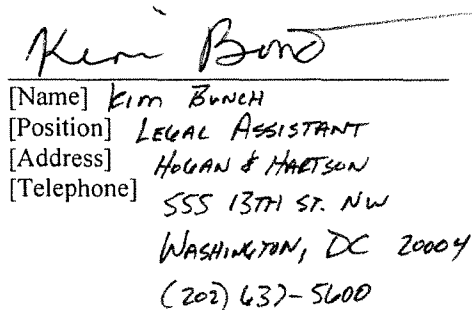 Kim Bunch
[Name] Kim Bunch
[Position] Legal Assistant
[Address] Hogan & Hartson
[Telephone] 555 13th St. NW
Washington, DC 20004
(202) 637-5600